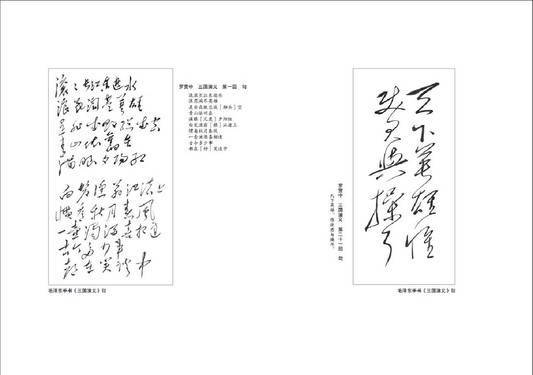 滚〻长江东逝水
浪花淘尽英雄
是非成败总成空
青山依旧在
满眼夕阳红
白发渔翁江渚上
惯看秋月春风
一壶浊酒喜相逢
古今多少事
都在笑谈中
毛泽东手书《三国演义》句
罗贯中 三国演义 第一回 句
滚滚长江东逝水
浪花淘尽英雄
是非成败总成［转头］空
青山依旧在
满眼［几度］夕阳红
白发渔翁［樵］江渚上
惯看秋月春风
一壶浊酒喜相逢
古今多少事
都在［付］笑谈中
罗贯中 三国演义 第二十一回 句
天下英雄，惟使君与操耳。
天下英雄惟
使君與操耳
毛泽东手书《三国演义》句